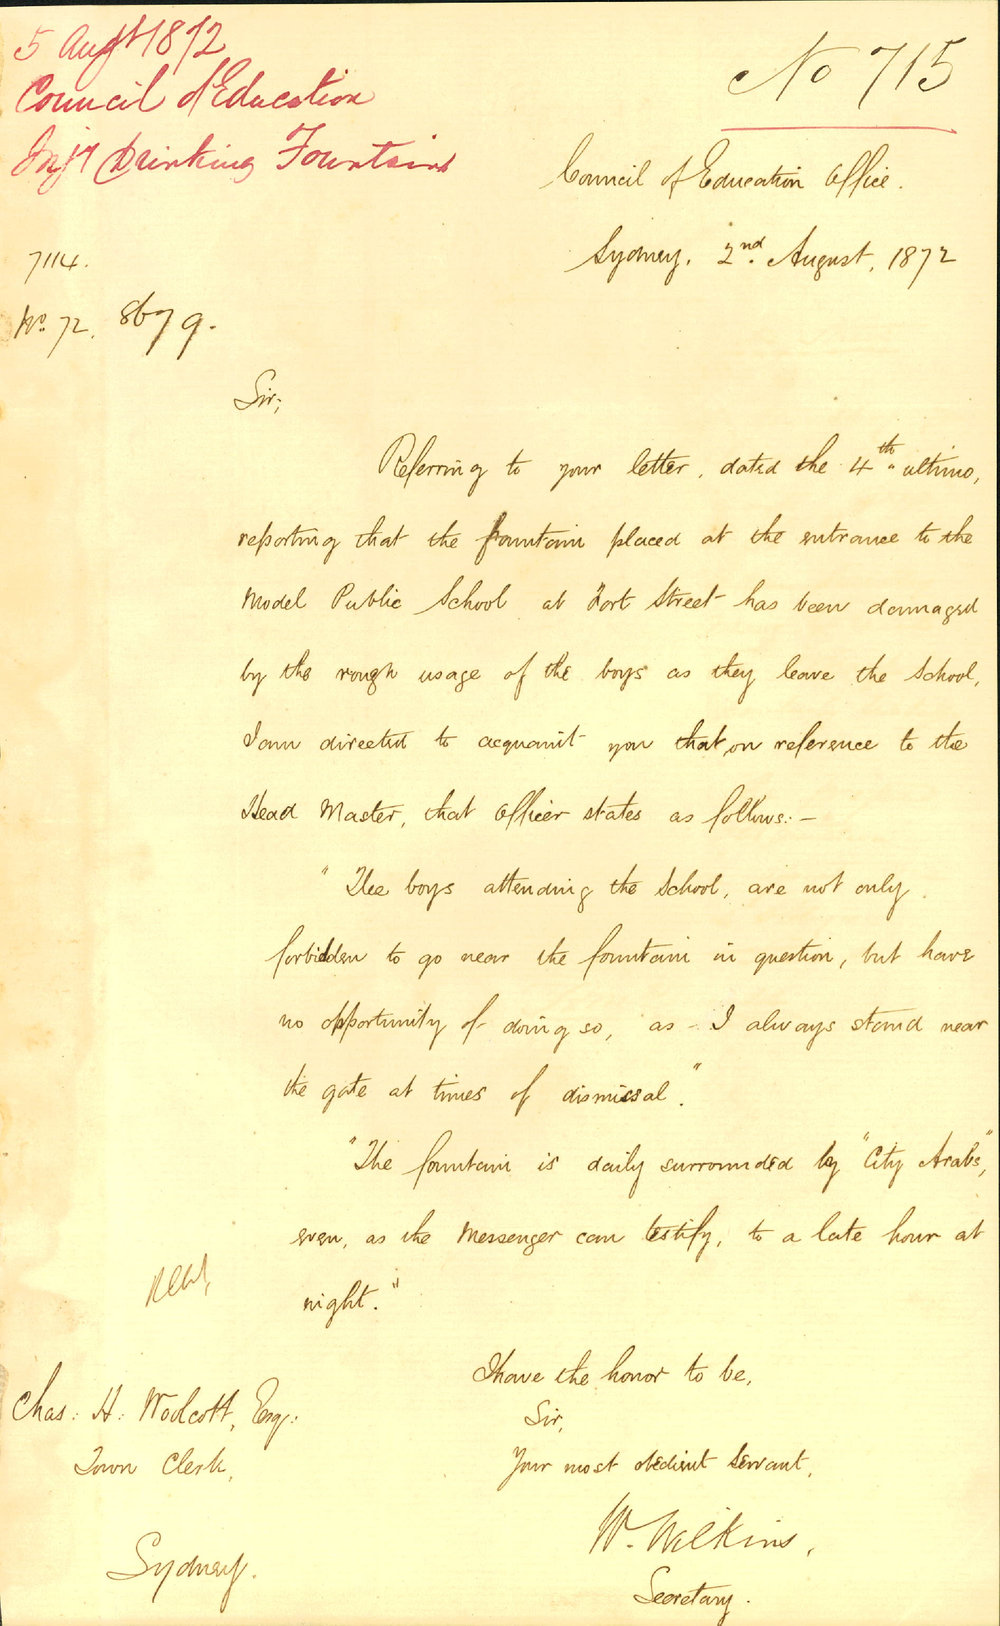 5 Augt 1872
Council of Education
Drinking Fountains
No 715
Council of Education Office.
Sydney, 2nd. August, 1872
7114.
No. 72. 8679.
Sir;
Referring to your letter, dated the 4th. ultimo,
reporting that the fountain placed at the entrance to the
Model Public School at Fort Street has been damaged
by the rough usage of the boys as they leave the School,
I am directed to acquaint you that, on reference to the
Head Master, that Officer states as follows:—
"The boys attending the School, are not only
forbidden to go near the fountain in question, but have
no opportunity of doing so, as I always stand near
the gate at times of dismissal."
"The fountain is daily surrounded by "City Arabs",
even, as the Messenger can testify, to a late hour at
night."
I have the honor to be,
Sir,
Your most obedient Servant,
W. Wilkins,
Secretary.
Chas: H: Woolcott, Esq:
Town Clerk,
Sydney.